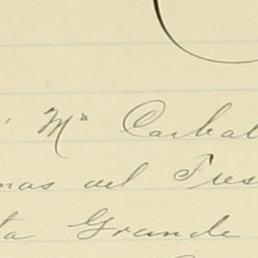 Mª Carbal
mas del Fres
ta Grande